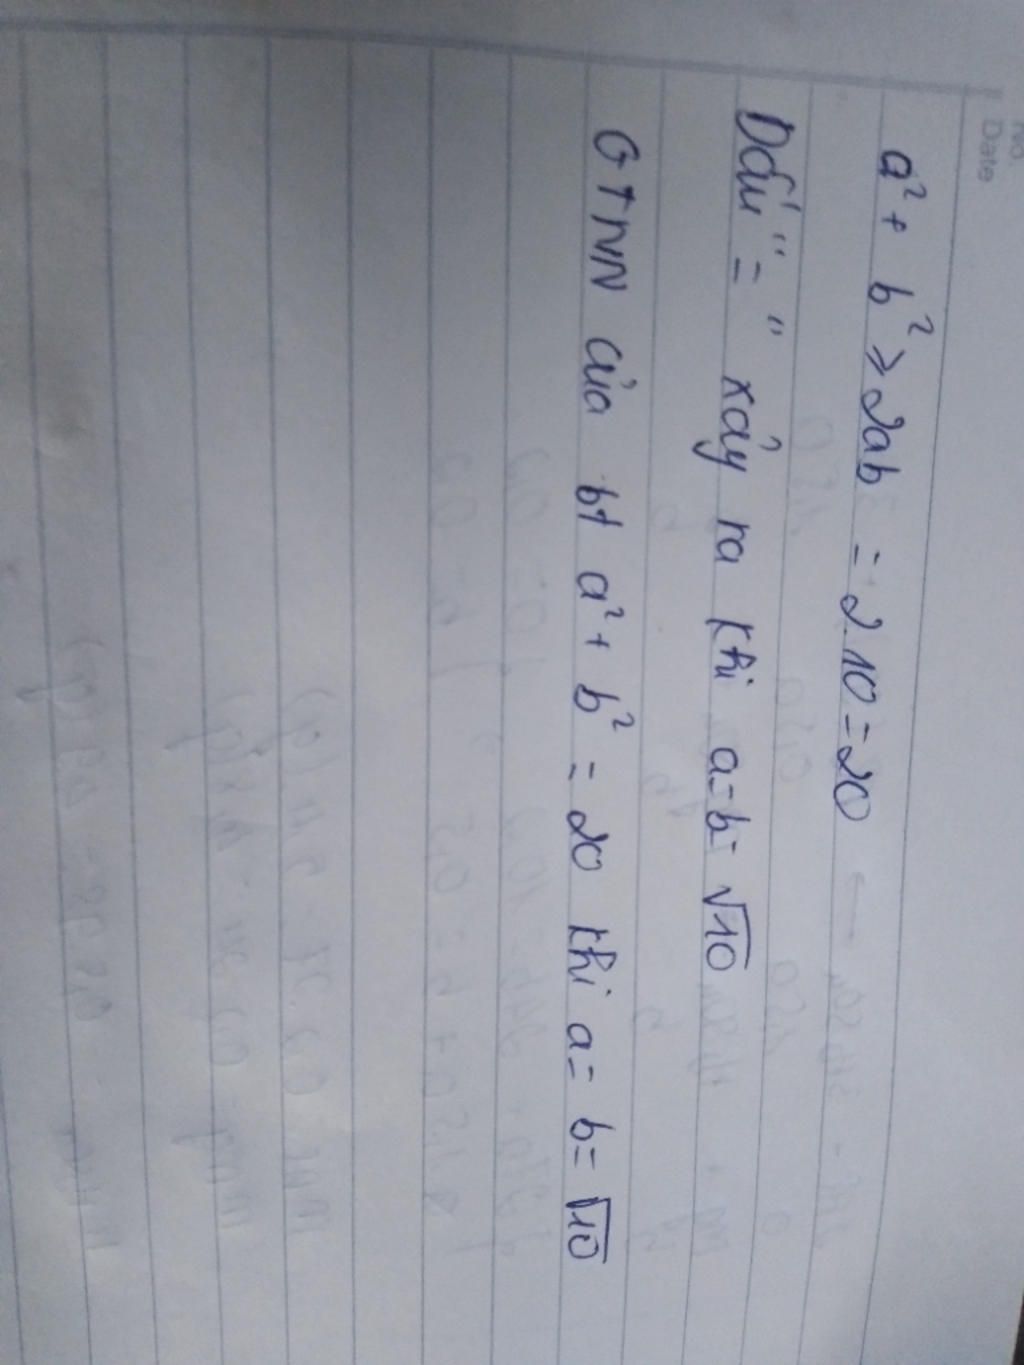 No.
Date
a² + b² ≥ 2ab = 2.10 = 20
Dấu " = " xảy ra khi a = b = √10
GTNN của bt a² + b² = 20 khi a = b = √10